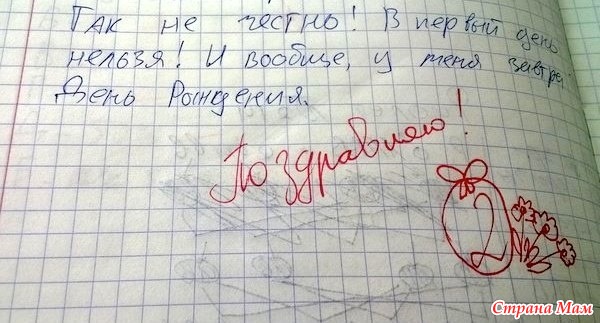 Так не честно! В первый день
нельзя! И вообще, у меня завтра
День Рождения.
Поздравляю!
2
Страна Мам